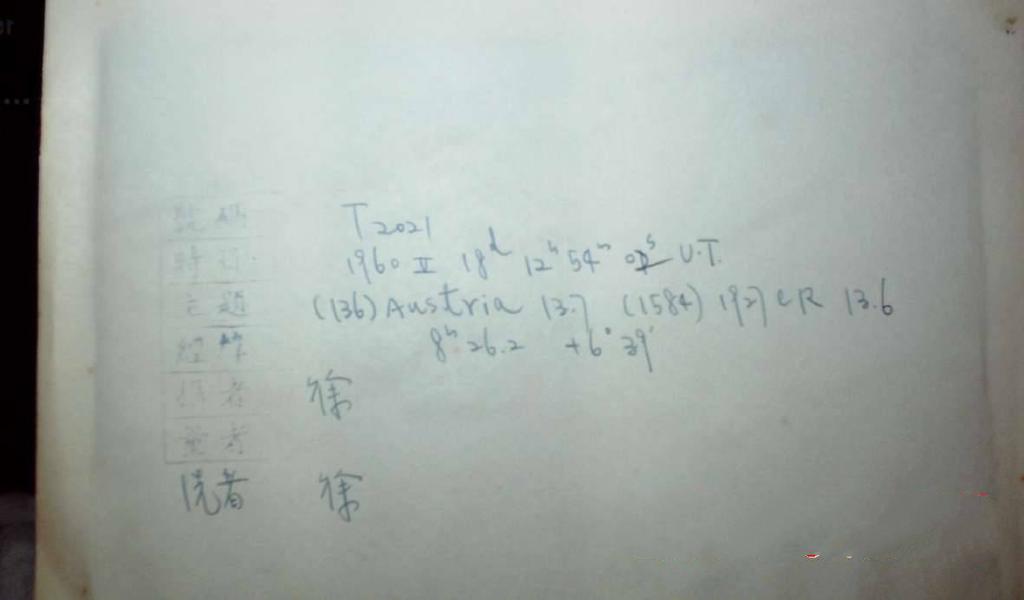 號碼 T2021
時 1960 II 18ᵈ 12ʰ 54ᵐ U.T.
主題 (136) Austria 13.7 (1584) 1927 CR 13.6
經緯 8ʰ 26.2 +6° 39′
者 徐
者 徐